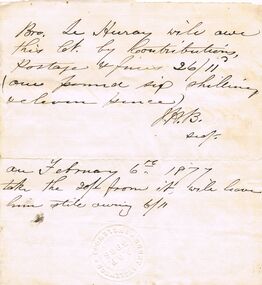 Bro. Le Huray will owe
this Ct. by Contributions,
Postage & fines 26/11
(one pound six shilling
& eleven pence)
J.R.B.
secy.
on February 6th 1877
take the 20/- from it will leave
him still owing 6/11